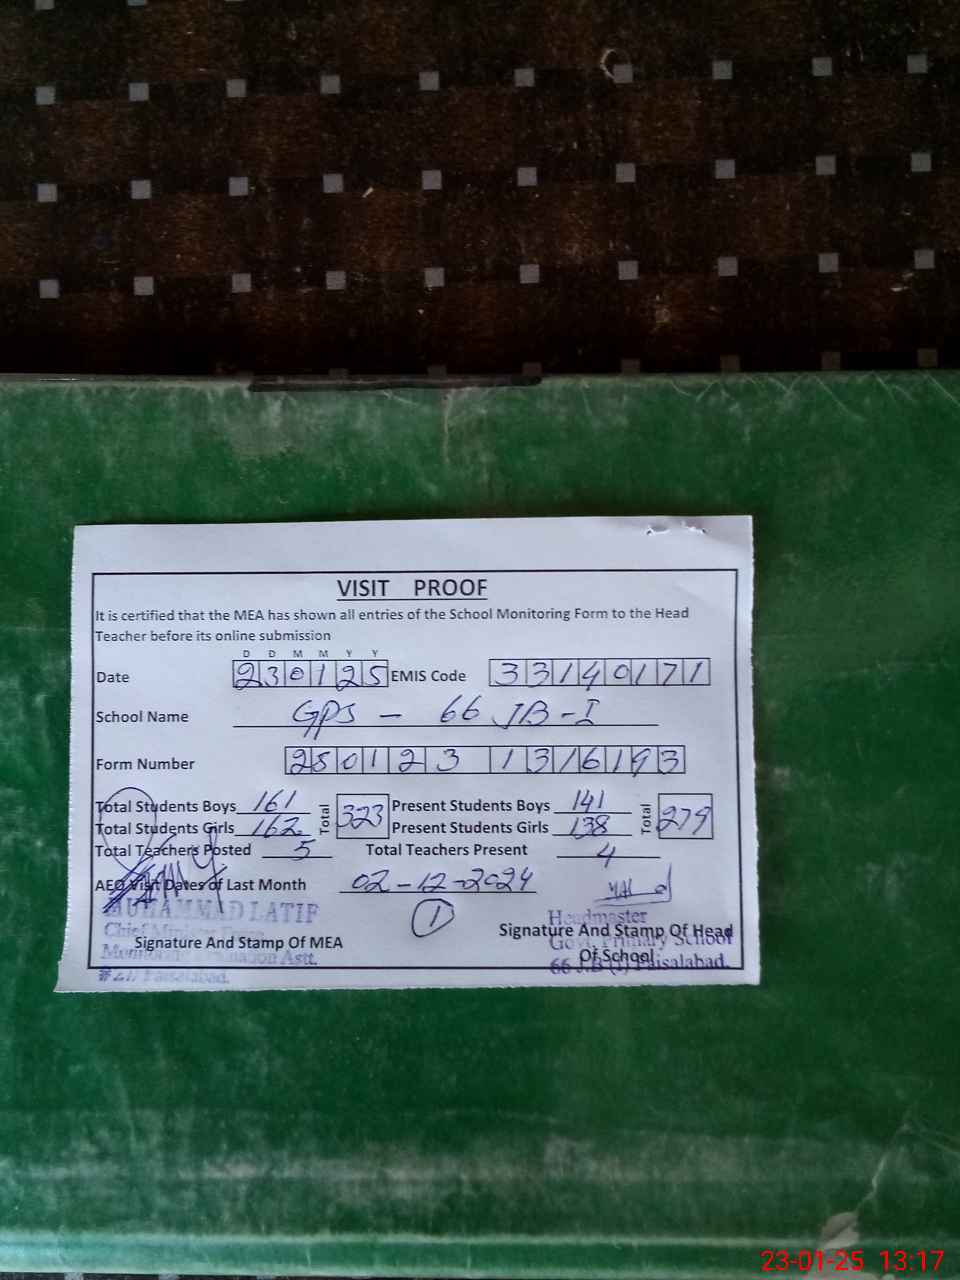 VISIT PROOF
It is certified that the MEA has shown all entries of the School Monitoring Form to the Head
Teacher before its online submission
D D M M Y Y
Date 230125 EMIS Code 33140171
School Name GPS - 66 JB-I
Form Number 250123 1316193
Total Students Boys 161 Total 323 Present Students Boys 141 Total 279
Total Students Girls 162 Present Students Girls 138
Total Teachers Posted 5 Total Teachers Present 4
AEO Visit Dates of Last Month 02-12-2024
1
MUHAMMAD LATIF
Chief Minister
Astt.
Faisalabad.
Signature And Stamp Of MEA
Headmaster
Govt. Primary School
66 J.B (I) Faisalabad.
Signature And Stamp Of Head
Of School
23-01-25 13:17